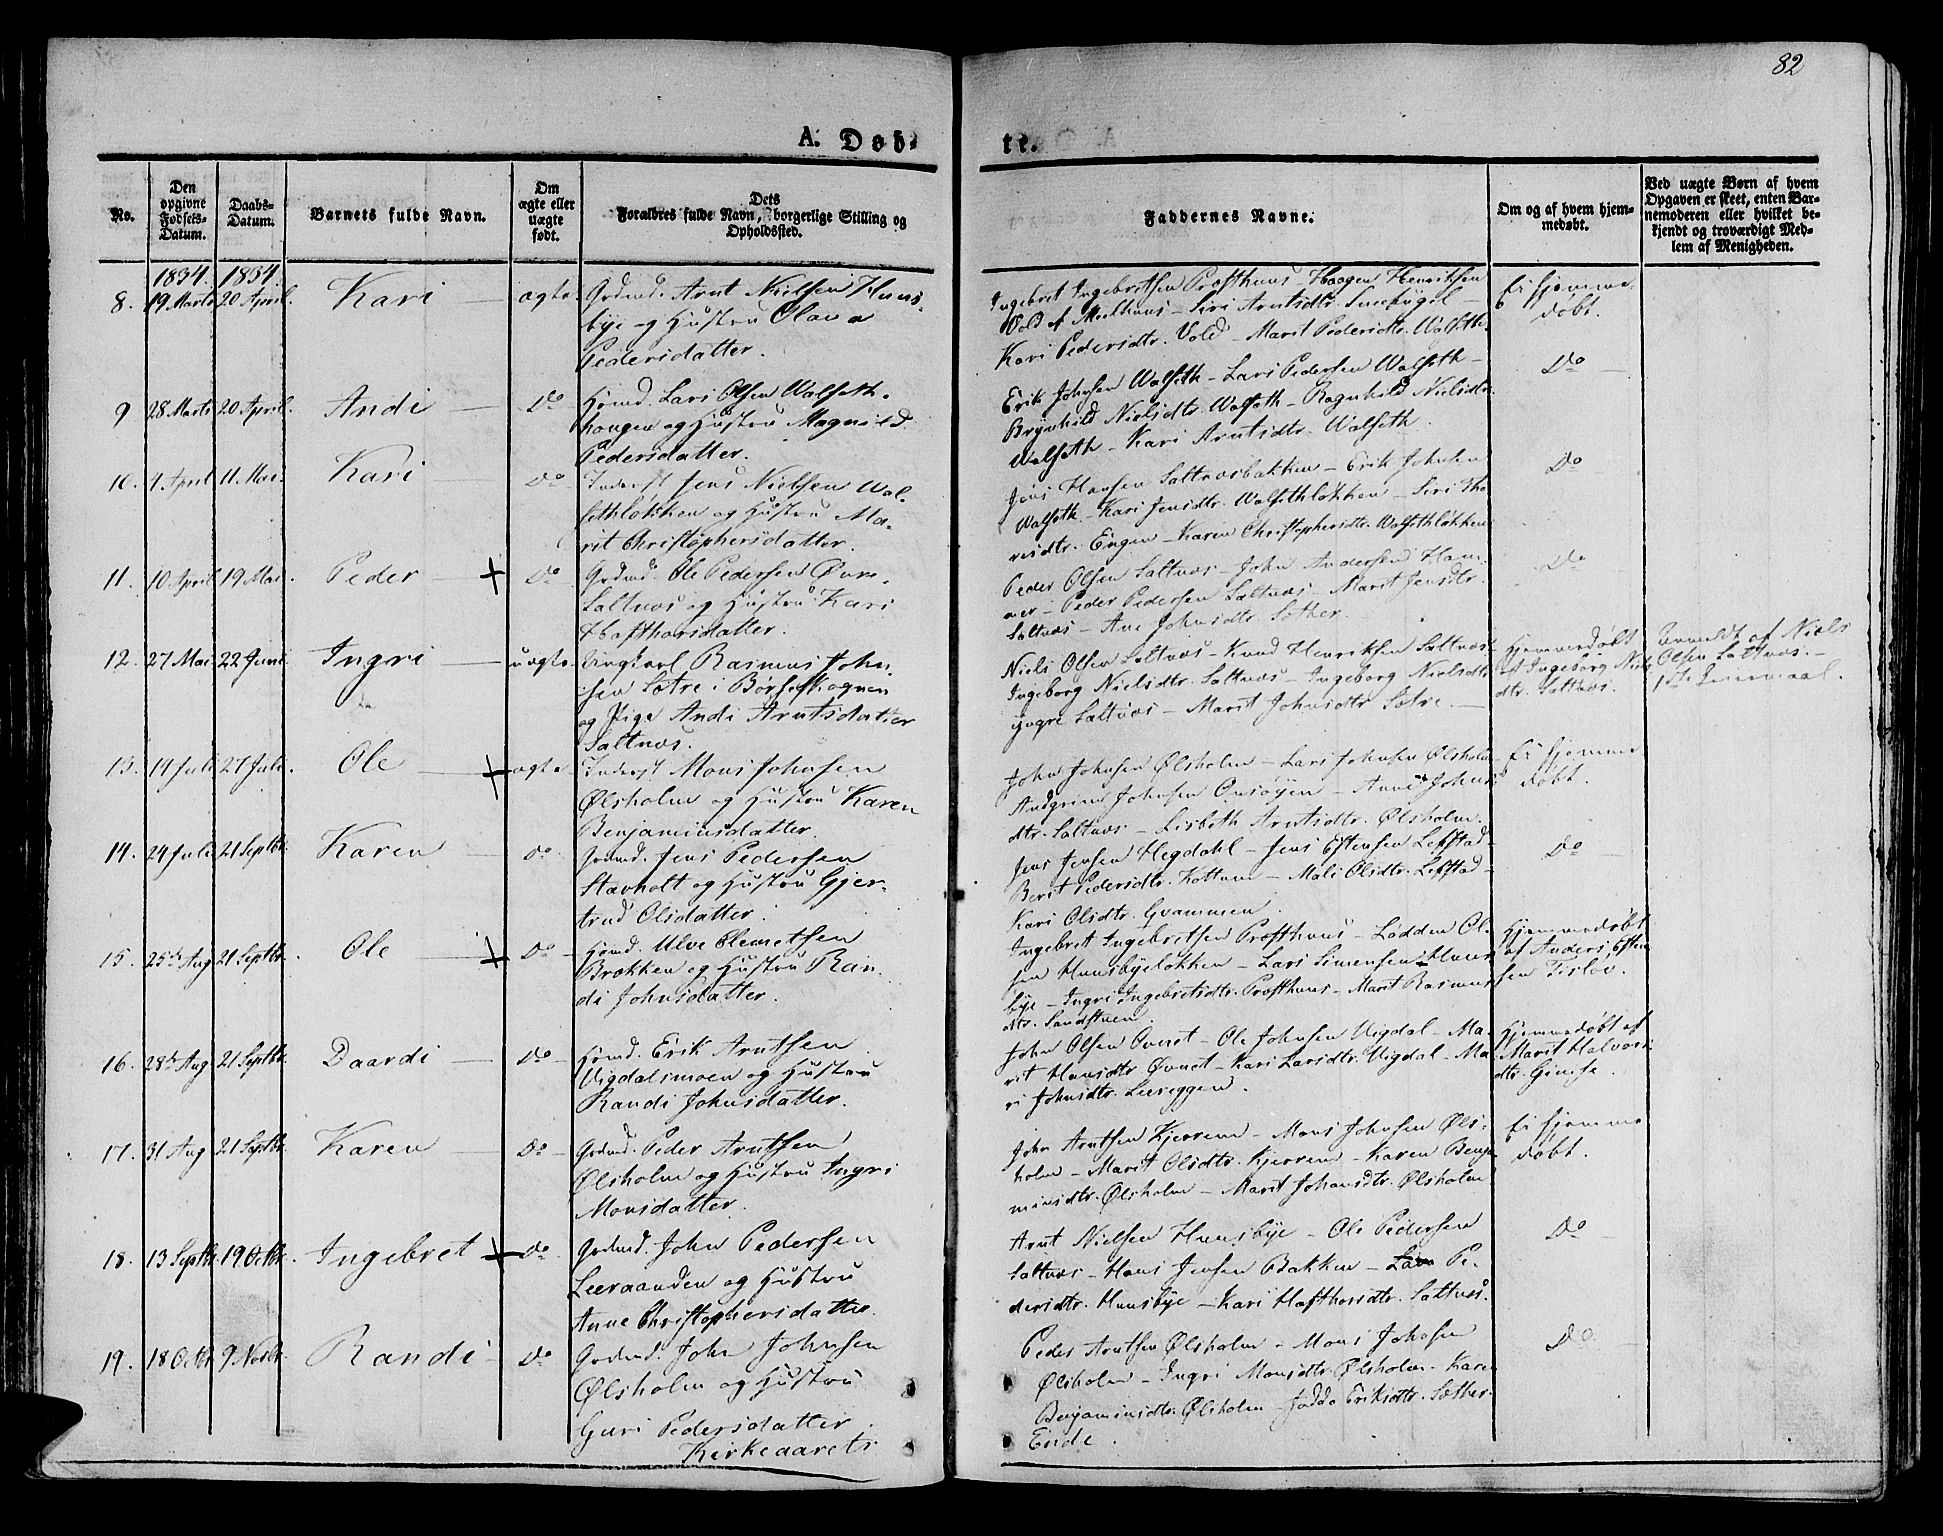 82
A. Døb-
te.
No.
Den opgivne Fødsels-Datum.
Daabs-Datum.
Barnets fulde Navn.
Om ægte eller uægte født.
Dets Forældres fulde Navn, borgerlige Stilling og Opholdssted.
Faddernes Navne.
Om og af hvem hjemmedøbt.
Ved uægte Børn af hvem Opgaven er skeet, enten Barnemoderen eller hvilket bekjendt og troværdigt Medlem af Menigheden.
1834. 1834.
8. 19 Marts 20 April. Kari — ægte. Grdmd. Arnt Nielsen Huus-
bye og Hustru Olava
Pedersdatter.
Ingebret Ingebretsen Præsthuus - Haagen Henriksen
Vold af Meelhuus - Siri Arntsdtr.
Kari Pedersdtr. Vold - Marit Pedersdtr. Walseth.
Ei hjemme
døbt.
9 28 Marts 20 April. Andi — Do Hsmd. Lars Olsen Walseth-
haugen og Hustru Magnild
Pedersdatter.
Erik Johnsen Walseth - Lars Pedersen Walseth -
Brynhild Nielsdtr. Walseth - Ragnhild Nielsdtr.
Walseth - Kari Arntsdtr. Walseth.
Do
10. 4 April 11. Mai. Kari — Do Inderst Jens Nielsen Wal-
sethløkken og Hustru Ma-
rit Christophersdatter.
Jens Hansen Saltnæsbakken - Erik Johnsen
Walseth - Kari Jensdtr. Walsethløkken - Siri Tho-
resdtr. Engen - Karen Christophersdtr. Walsethløkken
Do
11. 10 April 19 Mai. Peder + Do Grdmd. Ole Pedersen Øvre-
Saltnæs og Hustru Kari
Hafthorsdatter.
Peder Olsen Saltnæs - John Andersen Ham-
mer - Peder Pedersen Saltnæs - Marit Jensdtr.
Saltnæs - Ane Johnsdtr. Sæther.
Do
12. 27 Mai 22 Juni Ingri — uægte. Ungkarl Rasmus John-
sen Sætre i Børseskognen
og Pige Andi Arntsdatter
Saltnæs.
Niels Olsen Saltnæs - Knud Henriksen Saltnæs-
Ingeborg Nielsdtr. Saltnæs - Ingeborg Nielsdtr.
yngre Saltnæs - Marit Johnsdtr. Sætre. —
Hjemmedøbt
af Ingeborg Niels
dtr. Saltnæs.
Anmeldt af Niels
Olsen Saltnæs. —
1ste Leiermaal.
13. 14 Juli 27 Juli. Ole + ægte. Inderst Mons Johnsen
Ølsholm og Hustru Karen
Benjaminsdatter.
John Johnsen Ølsholm - Lars Johnsen Ølsholm-
Andgrim Johnsen Onsøyen - Anne Johns
dtr. Saltnæs - Lisbeth Arntsdtr. Ølsholm.
Ei hjemme
døbt.
14. 24 Juli 21 Septbr. Karen — Do Grdmd. Jens Pedersen
Stavholt og Hustru Gjer-
trud Olsdatter.
Jens Jensen Hegdahl - Jens Estensen Lefstad-
Berit Pedersdtr. Kottum - Mali Olsdtr. Lefstad-
Kari Olsdtr. Gvammen.
Do
15. 25de Aug 21 Septbr. Ole + Do Hsmd. Ulve Clemetsen
Brækken og Hustru Ran-
di Johnsdatter.
Ingebret Ingebretsen Præsthuus - Lodden Ol-
sen Huusbyeløkken - Lars Simensen Huus-
bye - Ingri Ingebretsdtr. Præsthuus - Marit Rasmus
dtr. Sandstuen.
Hjemmedøbt
af Anders Esten-
sen Tislov.
16. 28de Aug 21 Septbr. Daardi — Do Hsmd. Erik Arntsen
Vigdalsmoen og Hustru
Randi Johnsdatter.
John Olsen Øvnet - Ole Johnsen Vigdal - Ma-
rit Hansdtr Øvnet - Kari Larsdtr. Vigdal - Ma-
ri Johnsdtr. Leereggen.
Hjemmedøbt af
Marit Halvors
dtr. Gimse.
17. 31 Aug 21 Septbr. Karen — Do Grdmd. Peder Arntsen
Ølsholm og Hustru Ingri
Monsdatter.
John Arntsen Kjerrem - Mons Johnsen Øls-
holm - Marit Olsdtr. Kjerrem - Karen Benja-
minsdtr. Ølsholm - Marit Johansdtr. Ølsholm
Ei hjemme
døbt.
18. 13 Septbr. 19 Octbr. Ingebret + Do Grdmd. John Pedersen
Leeraanden og Hustru
Anne Christophersdatter.
Arnt Nielsen Huusbye - Ole Pedersen
Saltnæs - Hans Jensen Bakken - Pe-
dersdtr. Huusbye - Kari Hafthorsdtr. Saltnæs.
Do
19. 18 Octbr. 9 Novbr. Randi - Do Grdmd. John Johnsen
Ølsholm og Hustru
Guri Pedersdatter.
Kirkeaarets
Peder Arntsen Ølsholm - Mons Johnsen
Ølsholm - Ingri Monsdtr. Ølsholm - Karen
Benjaminsdtr. Ølsholm - Jadda Eriksdtr. Sæther.
Ende.
Do